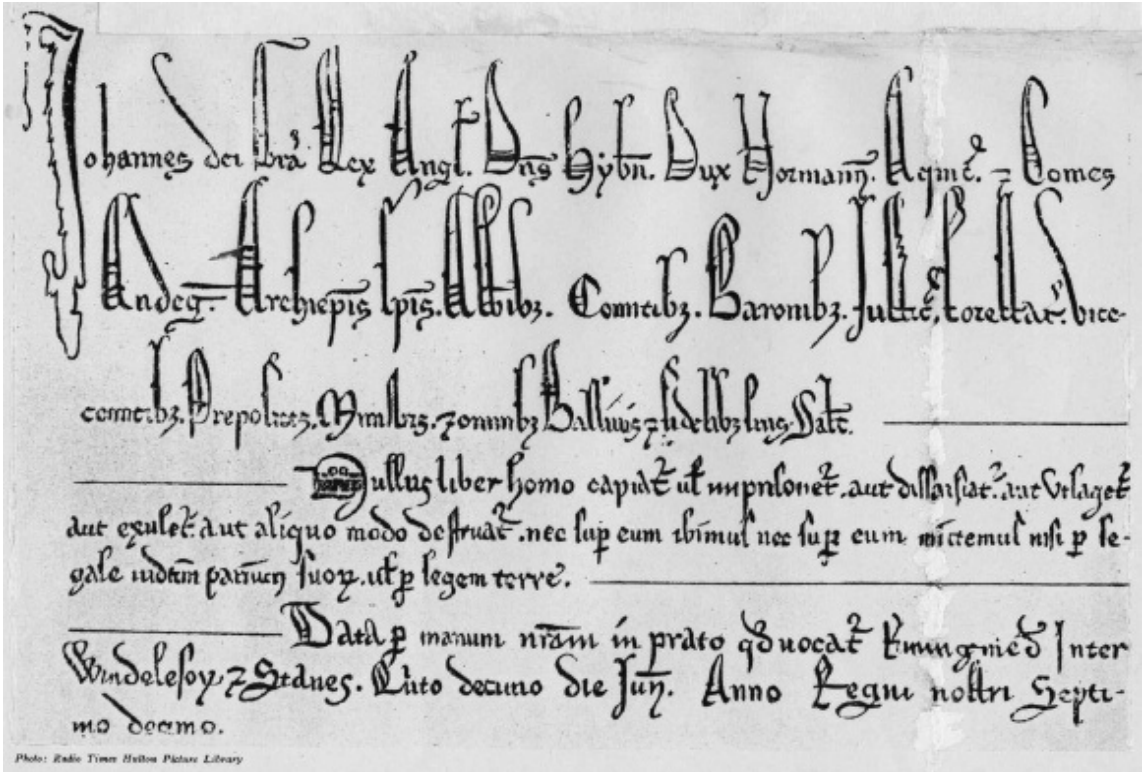 Johannes dei Gra Rex Angl. Dns Hybn. Dux Normann. Aqint. ⁊ Comes
Andeg. Archiepis Epis. Abbibz. Comitibz. Baronibz. Justic. forestar. vice-
comitibz. Prepositis. Ministris. ⁊ omnibz Ballivis ⁊ fidelibz suis. Salt.
Nullus liber homo capiat ul inprisonet. aut dissaisiat. aut Utlaget
aut exulet. aut aliquo modo destruat. nec sup eum ibimus nec sup eum mittemus nisi p le-
gale iudicm parium suoꝝ. ul p legem terre.
Data p manum nram in prato qd vocat Runingmed Inter
Windelesor ⁊ Stanes. Quito decimo die Jun. Anno Regni nostri Septi-
mo decimo.
Photo: Radio Times Hulton Picture Library